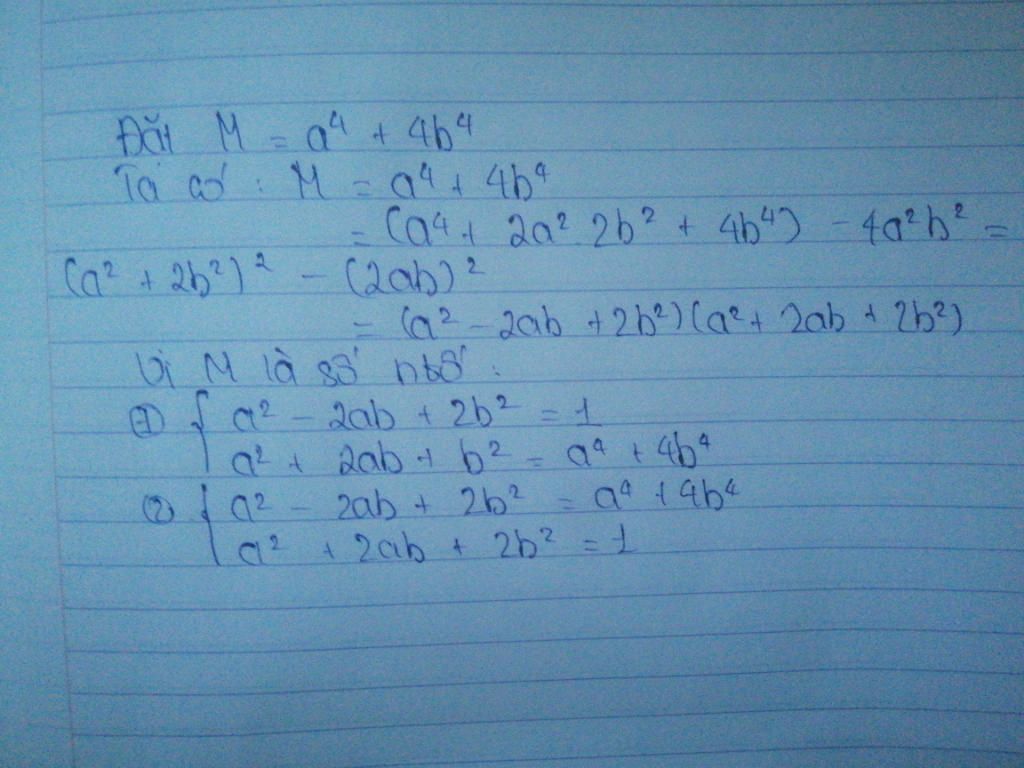 Đặt M = a⁴ + 4b⁴
Ta có : M = a⁴ + 4b⁴
= (a⁴ + 2a² 2b² + 4b⁴) - 4a²b² =
(a² + 2b²)² - (2ab)²
= (a² - 2ab + 2b²)(a² + 2ab + 2b²)
Vì M là số ntố :
① { a² - 2ab + 2b² = 1
a² + 2ab + b² = a⁴ + 4b⁴
② { a² - 2ab + 2b² = a⁴ + 4b⁴
a² + 2ab + 2b² = 1